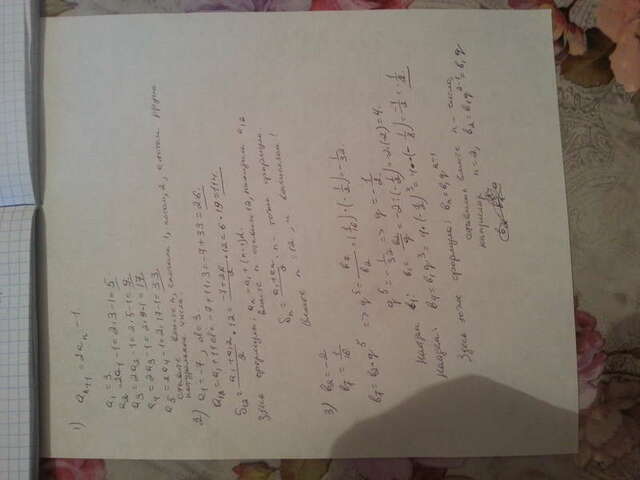 1) aₙ₊₁ = 2aₙ - 1
a₁ = 3
a₂ = 2a₁ - 1 = 2·3 - 1 = 5
a₃ = 2a₂ - 1 = 2·5 - 1 = 9
a₄ = 2a₃ - 1 = 2·9 - 1 = 17
a₅ = 2a₄ - 1 = 2·17 - 1 = 33
ставьте вместо n, сначала 1, потом 2, а потом другие
натуральные числа.
2) a₁ = -7, d = 3.
a₁₂ = a₁ + 11d = -7 + 11·3 = -7 + 33 = 26.
S₁₂ = (a₁ + a₁₂)/2 · 12 = (-7 + 26)/2 · 12 = 6·19 = 114.
Здесь формулы: aₙ = a₁ + (n-1)d.
вместо n ставим 12, находим a₁₂
Sₙ = (a₁ + aₙ)/2 · n - тоже формула
Вместо n = 12, и вычисляем!
3) b₂ = -2
b₇ = 1/16
b₇ = b₂·q⁵ => q⁵ = b₇/b₂ = (1/16)·(-1/2) = -1/32.
q⁵ = -1/32 => q = -1/2
Найдем b₁: b₁ = b₂/q = -2 : (-1/2) = -2·(-2) = 4.
Найдем: b₄ = b₁q³ = 4·(-1/2)³ = 4·(-1/8) = -1/2 = -1/2.
Здесь тоже формула: bₙ = b₁qⁿ⁻¹
вместо n - число,
например n = 2, b₂ = b₁q²⁻¹ = b₁q